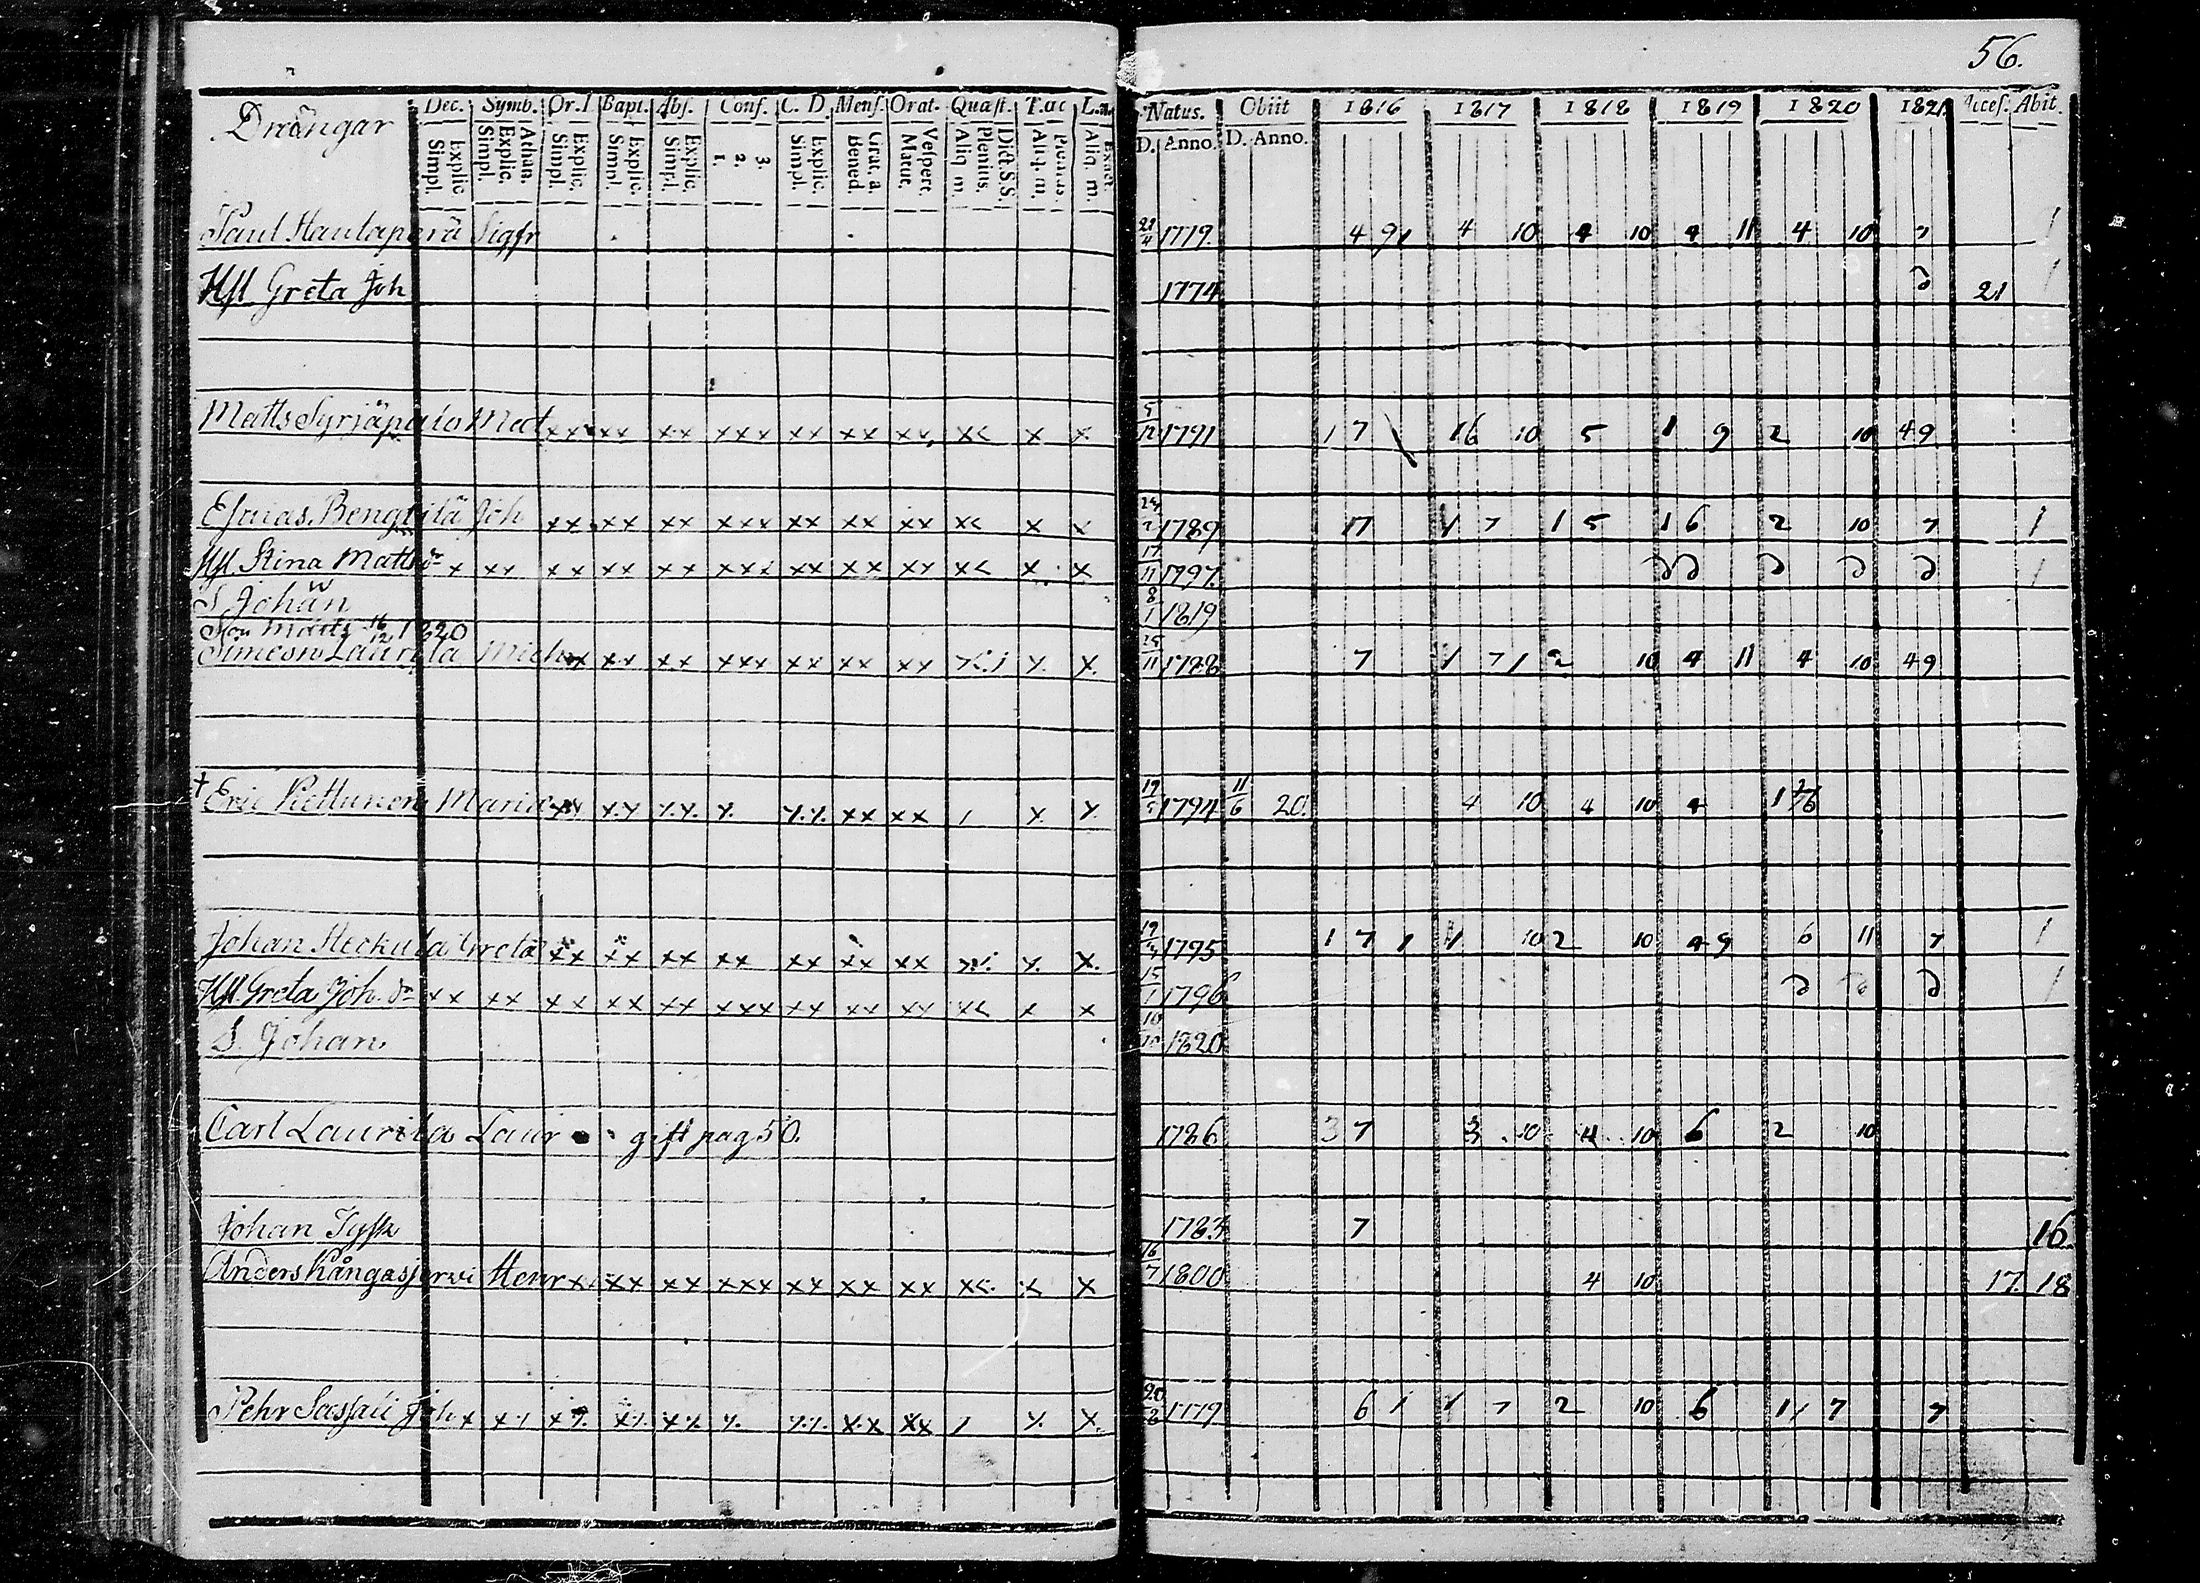 56.
Drängar Dec. Symb. Or. D Bapt. Abs. Conf. C. D. Mens. Orat. Quæst. T. Natus. Obiit 1816 1817 1818 1819 1820 1821 Acces. Abit.
Explic. Simpl. Athan. Explic. Simpl. Explic. Simpl. Explic. Simpl. Explic. Simpl. 3. 2. 1. Explic. Simpl. Grat. a. Bened. Vespert. Matut. Dict. S. S. Plenius. Aliq. m. Plenius. Aliq. m. Exact. Aliq. m. D. Anno. D. Anno.
Paul Hautaperä Sigfr 21/4 1779. 4 9 1 4 10 4 10 4 11 4 10 7 1
Hst Greta Joh 1774 21 1
Matts Syrjäpalo Mat xx xx xx xxx xx xx xx x< x x 5/12 1791 1 7 16 10 5 1 9 2 10 49
Esaias Bengtilä Joh xx xx xx xxx xx xx xx x< x x 1789 17 1 7 1 5 1 6 2 10 7 1
Hst Stina Matts dr x xx xx xx xx xxx xx xx xx x< x x 17/11 1797. 1
S Johan 8/1 1819
Son Matts 16/12 1820
Simeon Laurila Mich xx xx xx xxx xx xx xx x x 25/11 1788 7 1 7 1 2 10 4 11 4 10 49
† Eric Kettunen Maria xx xx xx x xx xx xx / x x 19/5 1794 11/6 20. 4 10 4 10 4 1
Johan Heckula Greta xx xx xx xx xx xx xx x x 1795 1 7 1 1 10 2 10 4 9 6 11 7 1
Hst Greta Joh. dr xx xx xx xx xx xxx xx xx xx x< x x 15/1 1796 1
S. Johan 10/10 1820
Carl Laurila Laur gift pag 50. 1786 3 7 3 10 4 10 6 2 10
Johan Tysk 7 16
Anders Kångasjervi Henr xx xx xx xxx xx xx xx x< x x 16/7 1800 4 10 17. 18
Pehr Joh x xx xx xx xx x. xx xx xx / x x 20/8 1779 6 1 1 7 2 10 6 1 1 7 7